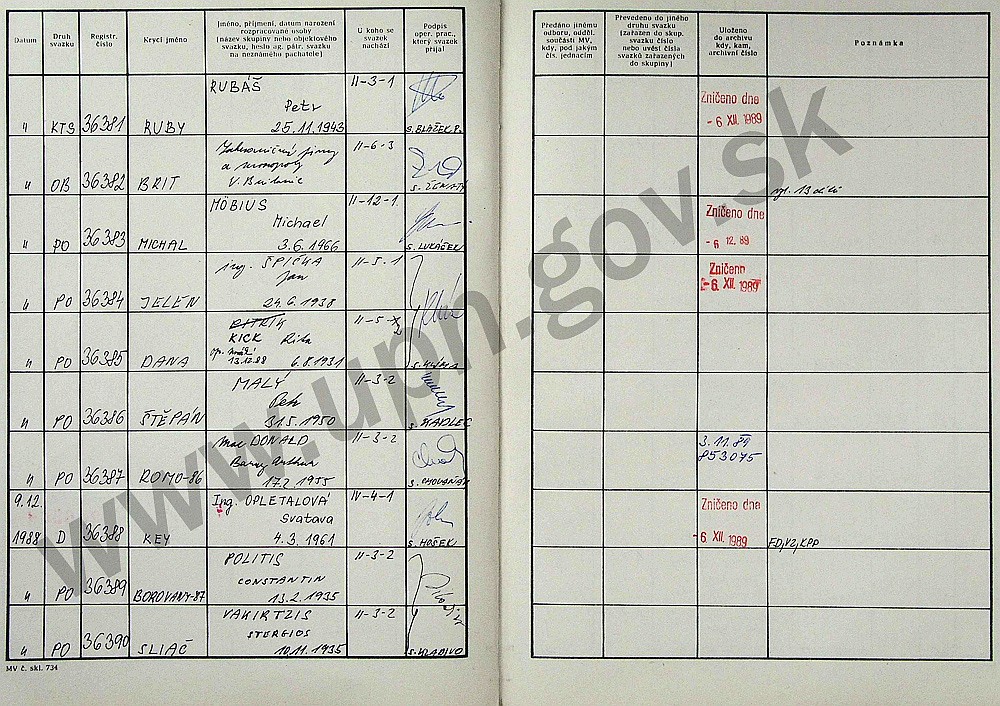 Datum
Druh svazku
Registr. číslo
Krycí jméno
Jméno, příjmení, datum narození
rozpracované osoby
(název skupiny nebo objektového
svazku, heslo ag. pátr. svazku
na neznámého pachatele)
U koho se
svazek
nachází
Podpis
oper. prac.,
který svazek
přijal
Předáno jinému
odboru, odděl.
součásti MV,
kdy, pod jakým
čís. jednacím
Převedeno do jiného
druhu svazku
(zařazen do skup.
svazku číslo
nebo uvést čísla
svazků zařazených
do skupiny)
Uloženo
do archivu
kdy, kam,
archivní číslo
Poznámka
RUBÁŠ II-3-1
Petr
" KTS 36381 RUBY 25.11.1943 s. BLAŽEK P.
Zničeno dne
- 6 XII. 1989
II-6-3
a monopoly
" OB 36382 BRIT
MÖBIUS II-12-1
Michael
" PO 36383 MICHAL 3.6.1966 s. LUKÁČEK
Zničeno dne
- 6 12. 89
ing. ŠPIČKA II-5-1
Jan
" PO 36384 JELEN 24.6.1938
Zničeno
- 6. XII. 1989
II-5-
KICK Rita
13.12.88
" PO 36385 DANA 6.8.1931 s. KLÍMA
MALÝ II-3-2
Petr
" PO 36386 ŠTĚPÁN 31.5.1950 s. KADLEC
Mac DONALD II-3-2
Barry Arthur
" PO 36387 ROMO-86 17.2.1955
3.11.89
853075
9.12. Ing. OPLETALOVÁ IV-4-1
Svatava
1988 D 36388 KEY 4.3.1961 s. HOŠEK
Zničeno dne
- 6 XII. 1989
FD, VZ, KPP
POLITIS II-3-2
CONSTANTIN
" PO 36389 BOROVANY-87 13.2.1935
VAKIRTZIS II-3-2
STERGIOS
" PO 36390 SLIAČ 10.11.1935 s. HLADIVO
MV č. skl. 734
www.upn.gov.sk